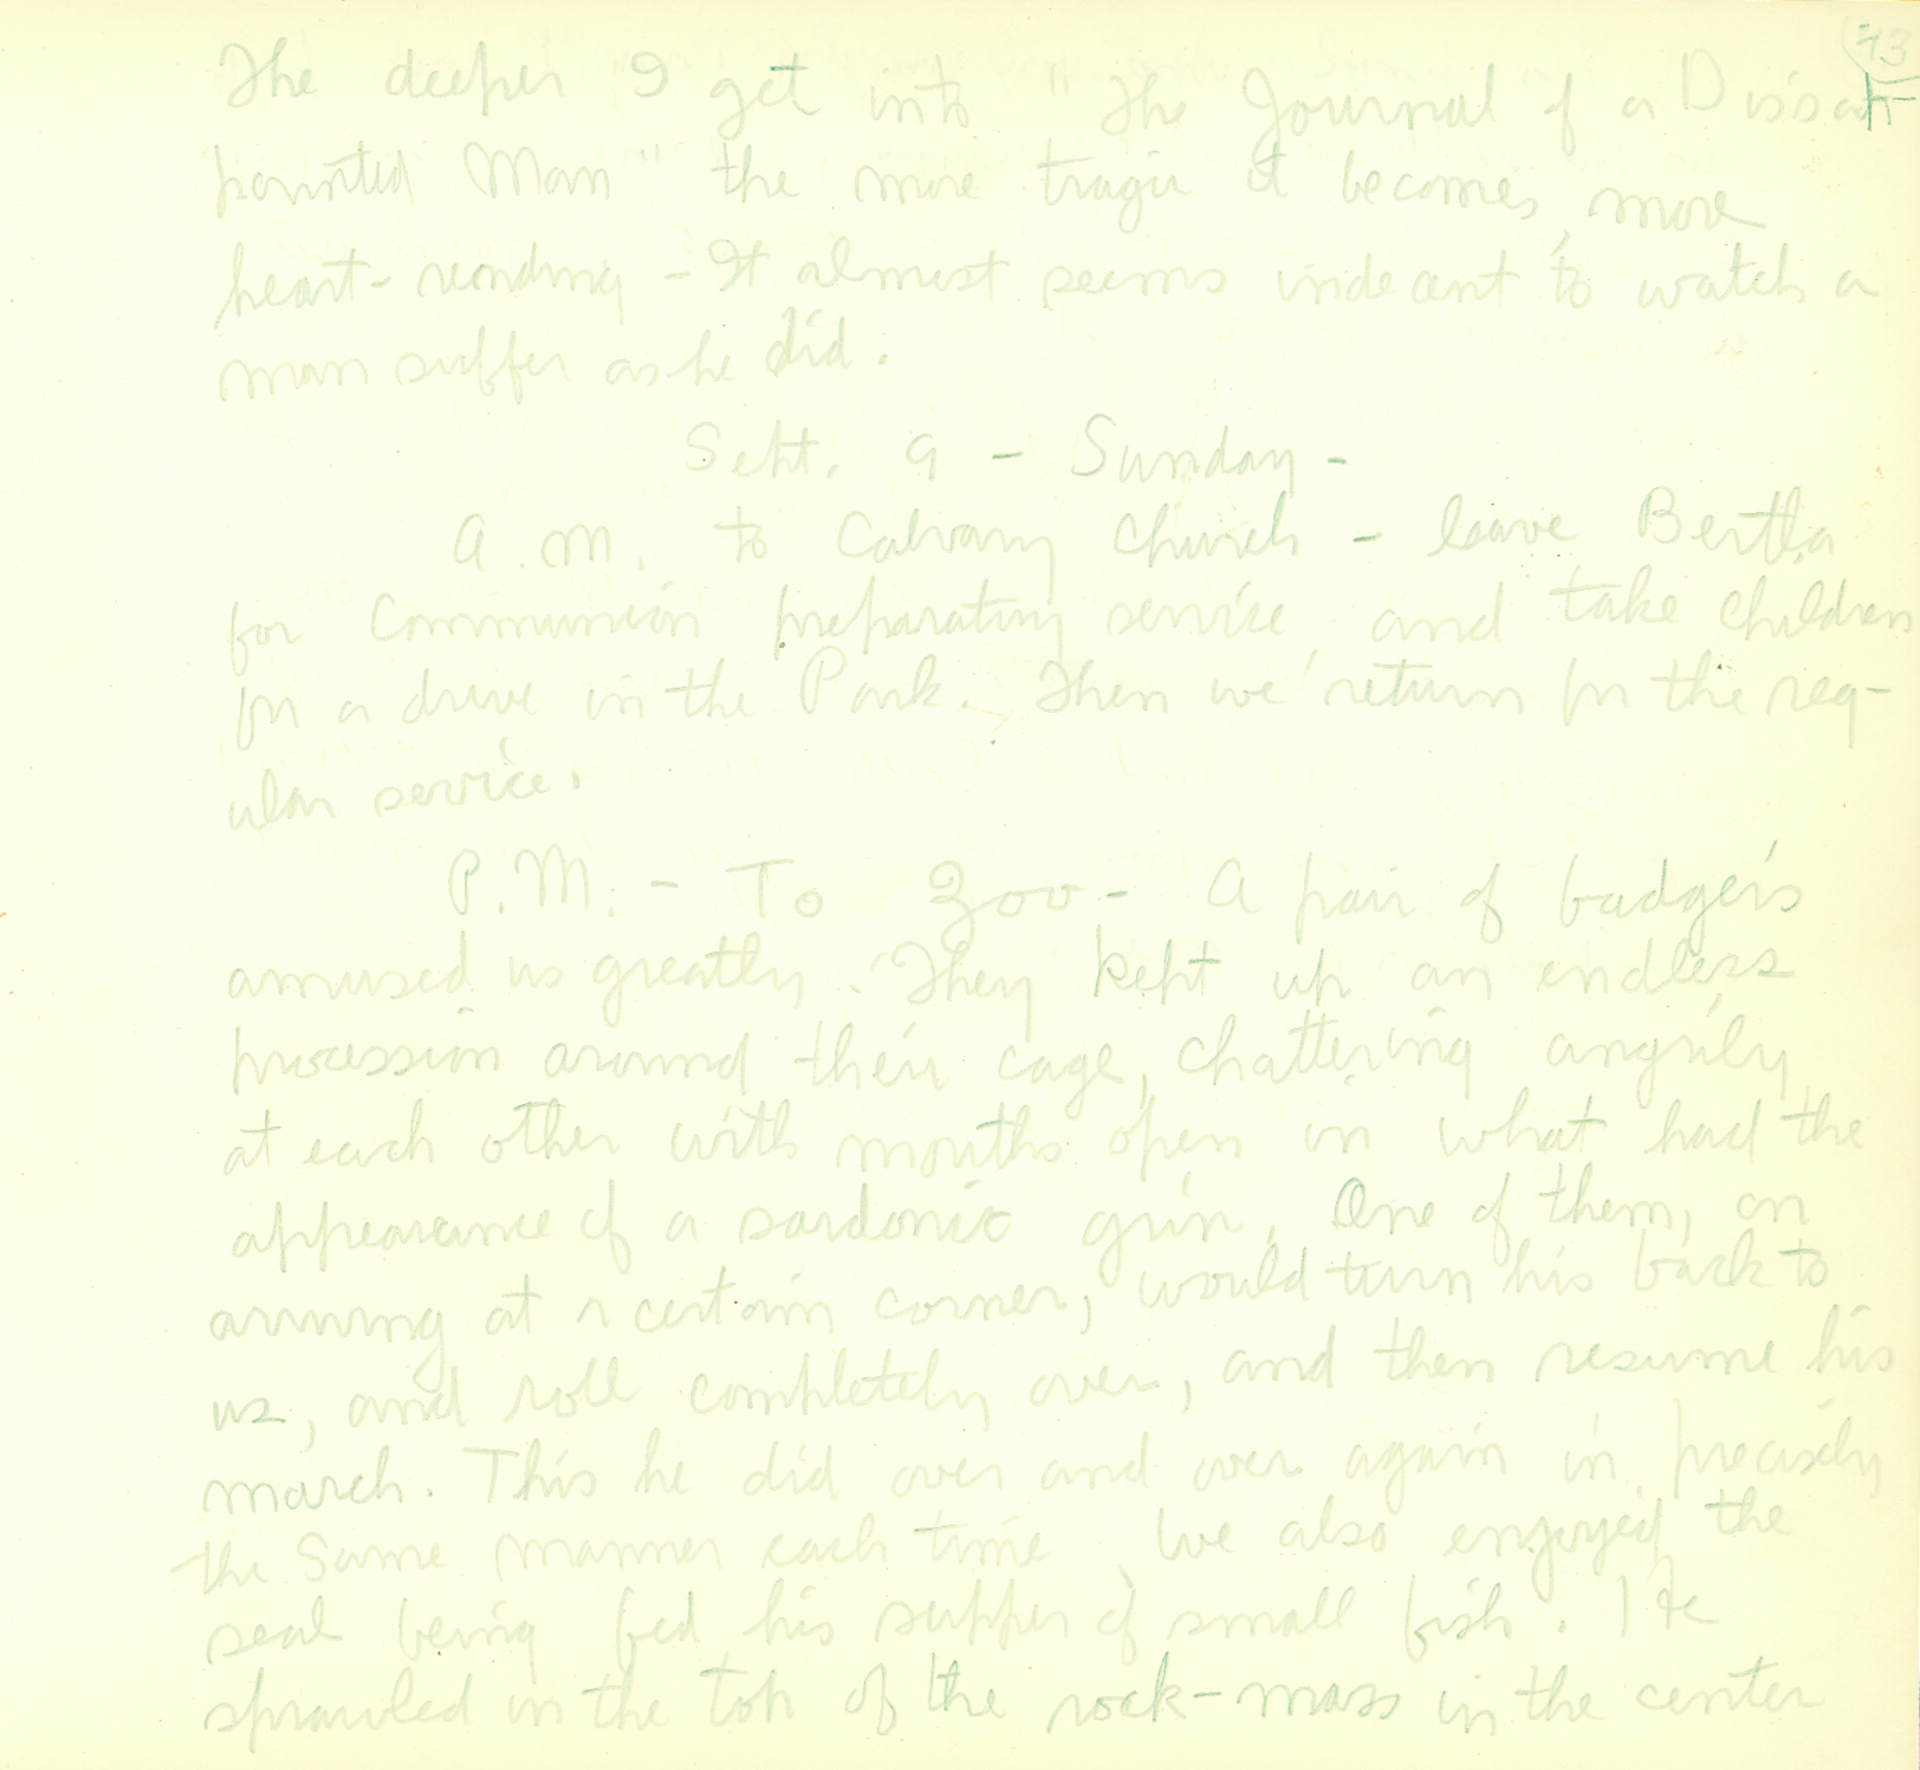 73
The deeper I get into "The Journal of a Dissap-
pointed Man" the more tragic it becomes, more
heart-rending - It almost seems indecent to watch a
man suffer as he did.
Sept. 9 - Sunday -
A.M. to Calvary Church - leave Bertha
for Communion preparatory service and take children
for a drive in the Park. Then we return for the reg-
ular service.
P.M. - To Zoo - A pair of badgers
amused us greatly. They kept up an endless
procession around their cage, chattering angrily
at each other with mouths open in what had the
appearance of a sardonic grin. One of them, on
arriving at a certain corner, would turn his back to
us, and roll completely over, and then resume his
march. This he did over and over again in precisely
the same manner each time. We also enjoyed the
seal being fed his supper of small fish. He
sprawled in the top of the rock-mass in the center